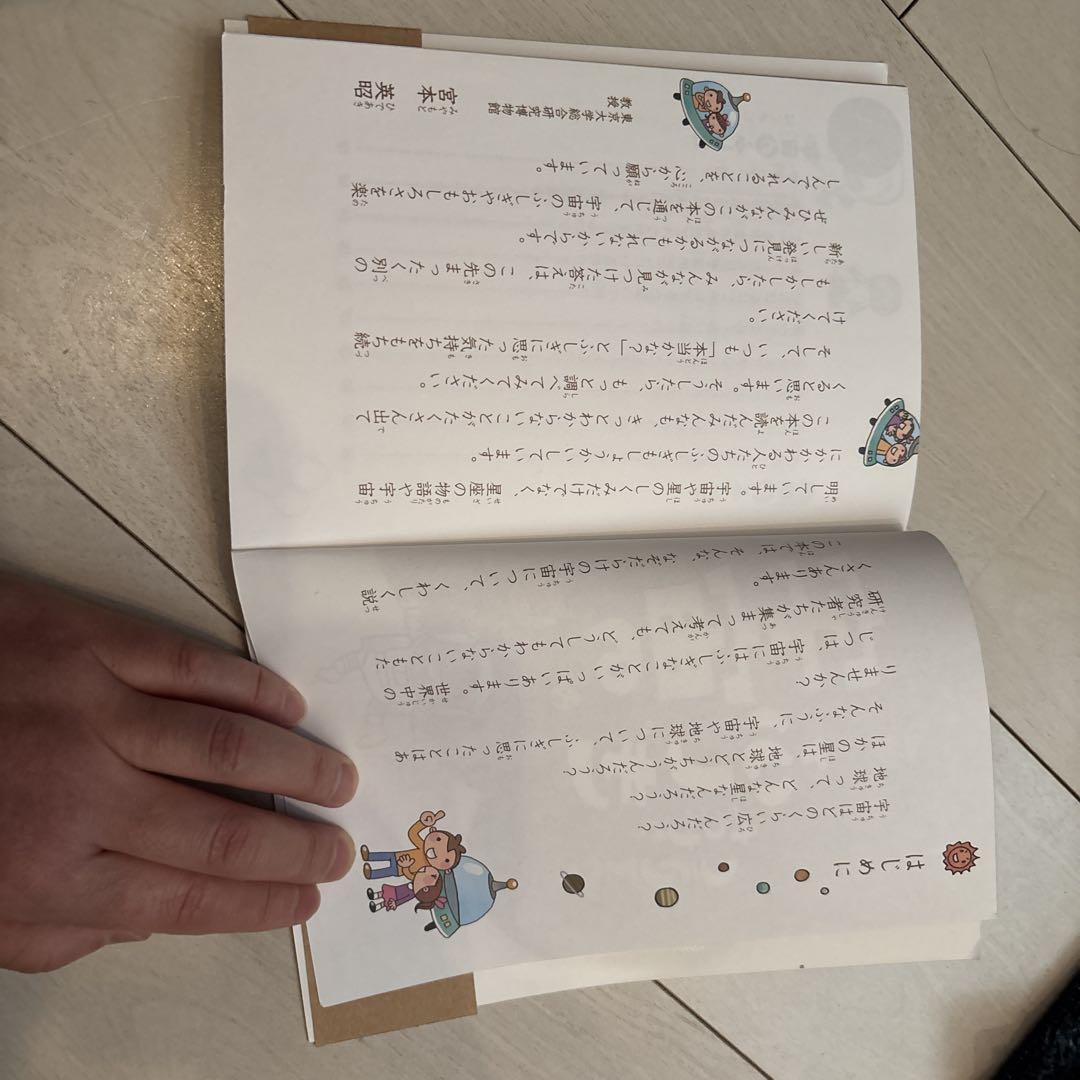 はじめに
宇宙はどのくらい広いんだろう？
地球って、どんな星なんだろう？
ほかの星は、地球とどうちがうんだろう？
そんなふうに、宇宙や地球について、ふしぎに思ったことはあ
りませんか？
じつは、宇宙にはふしぎなことがいっぱいあります。世界中の
研究者たちが集まって考えても、どうしてもわからないこともた
くさんあります。
この本では、そんな、なぞだらけの宇宙について、くわしく説
明しています。宇宙や星のしくみだけでなく、星座の物語や宇宙
にかかわる人たちのふしぎもしょうかいしています。
この本を読んだみんなも、きっとわからないことがたくさん出て
くると思います。そうしたら、もっと調べてみてください。
そして、いつも「本当かな？」とふしぎに思った気持ちをもち続
けてください。
もしかしたら、みんなが見つけた答えは、この先まったく別の
新しい発見につながるかもしれないからです。
ぜひみんながこの本を通じて、宇宙のふしぎやおもしろさを楽
しんでくれることを、心から願っています。
東京大学総合研究博物館
教授
宮本 英昭
みやもと ひであき